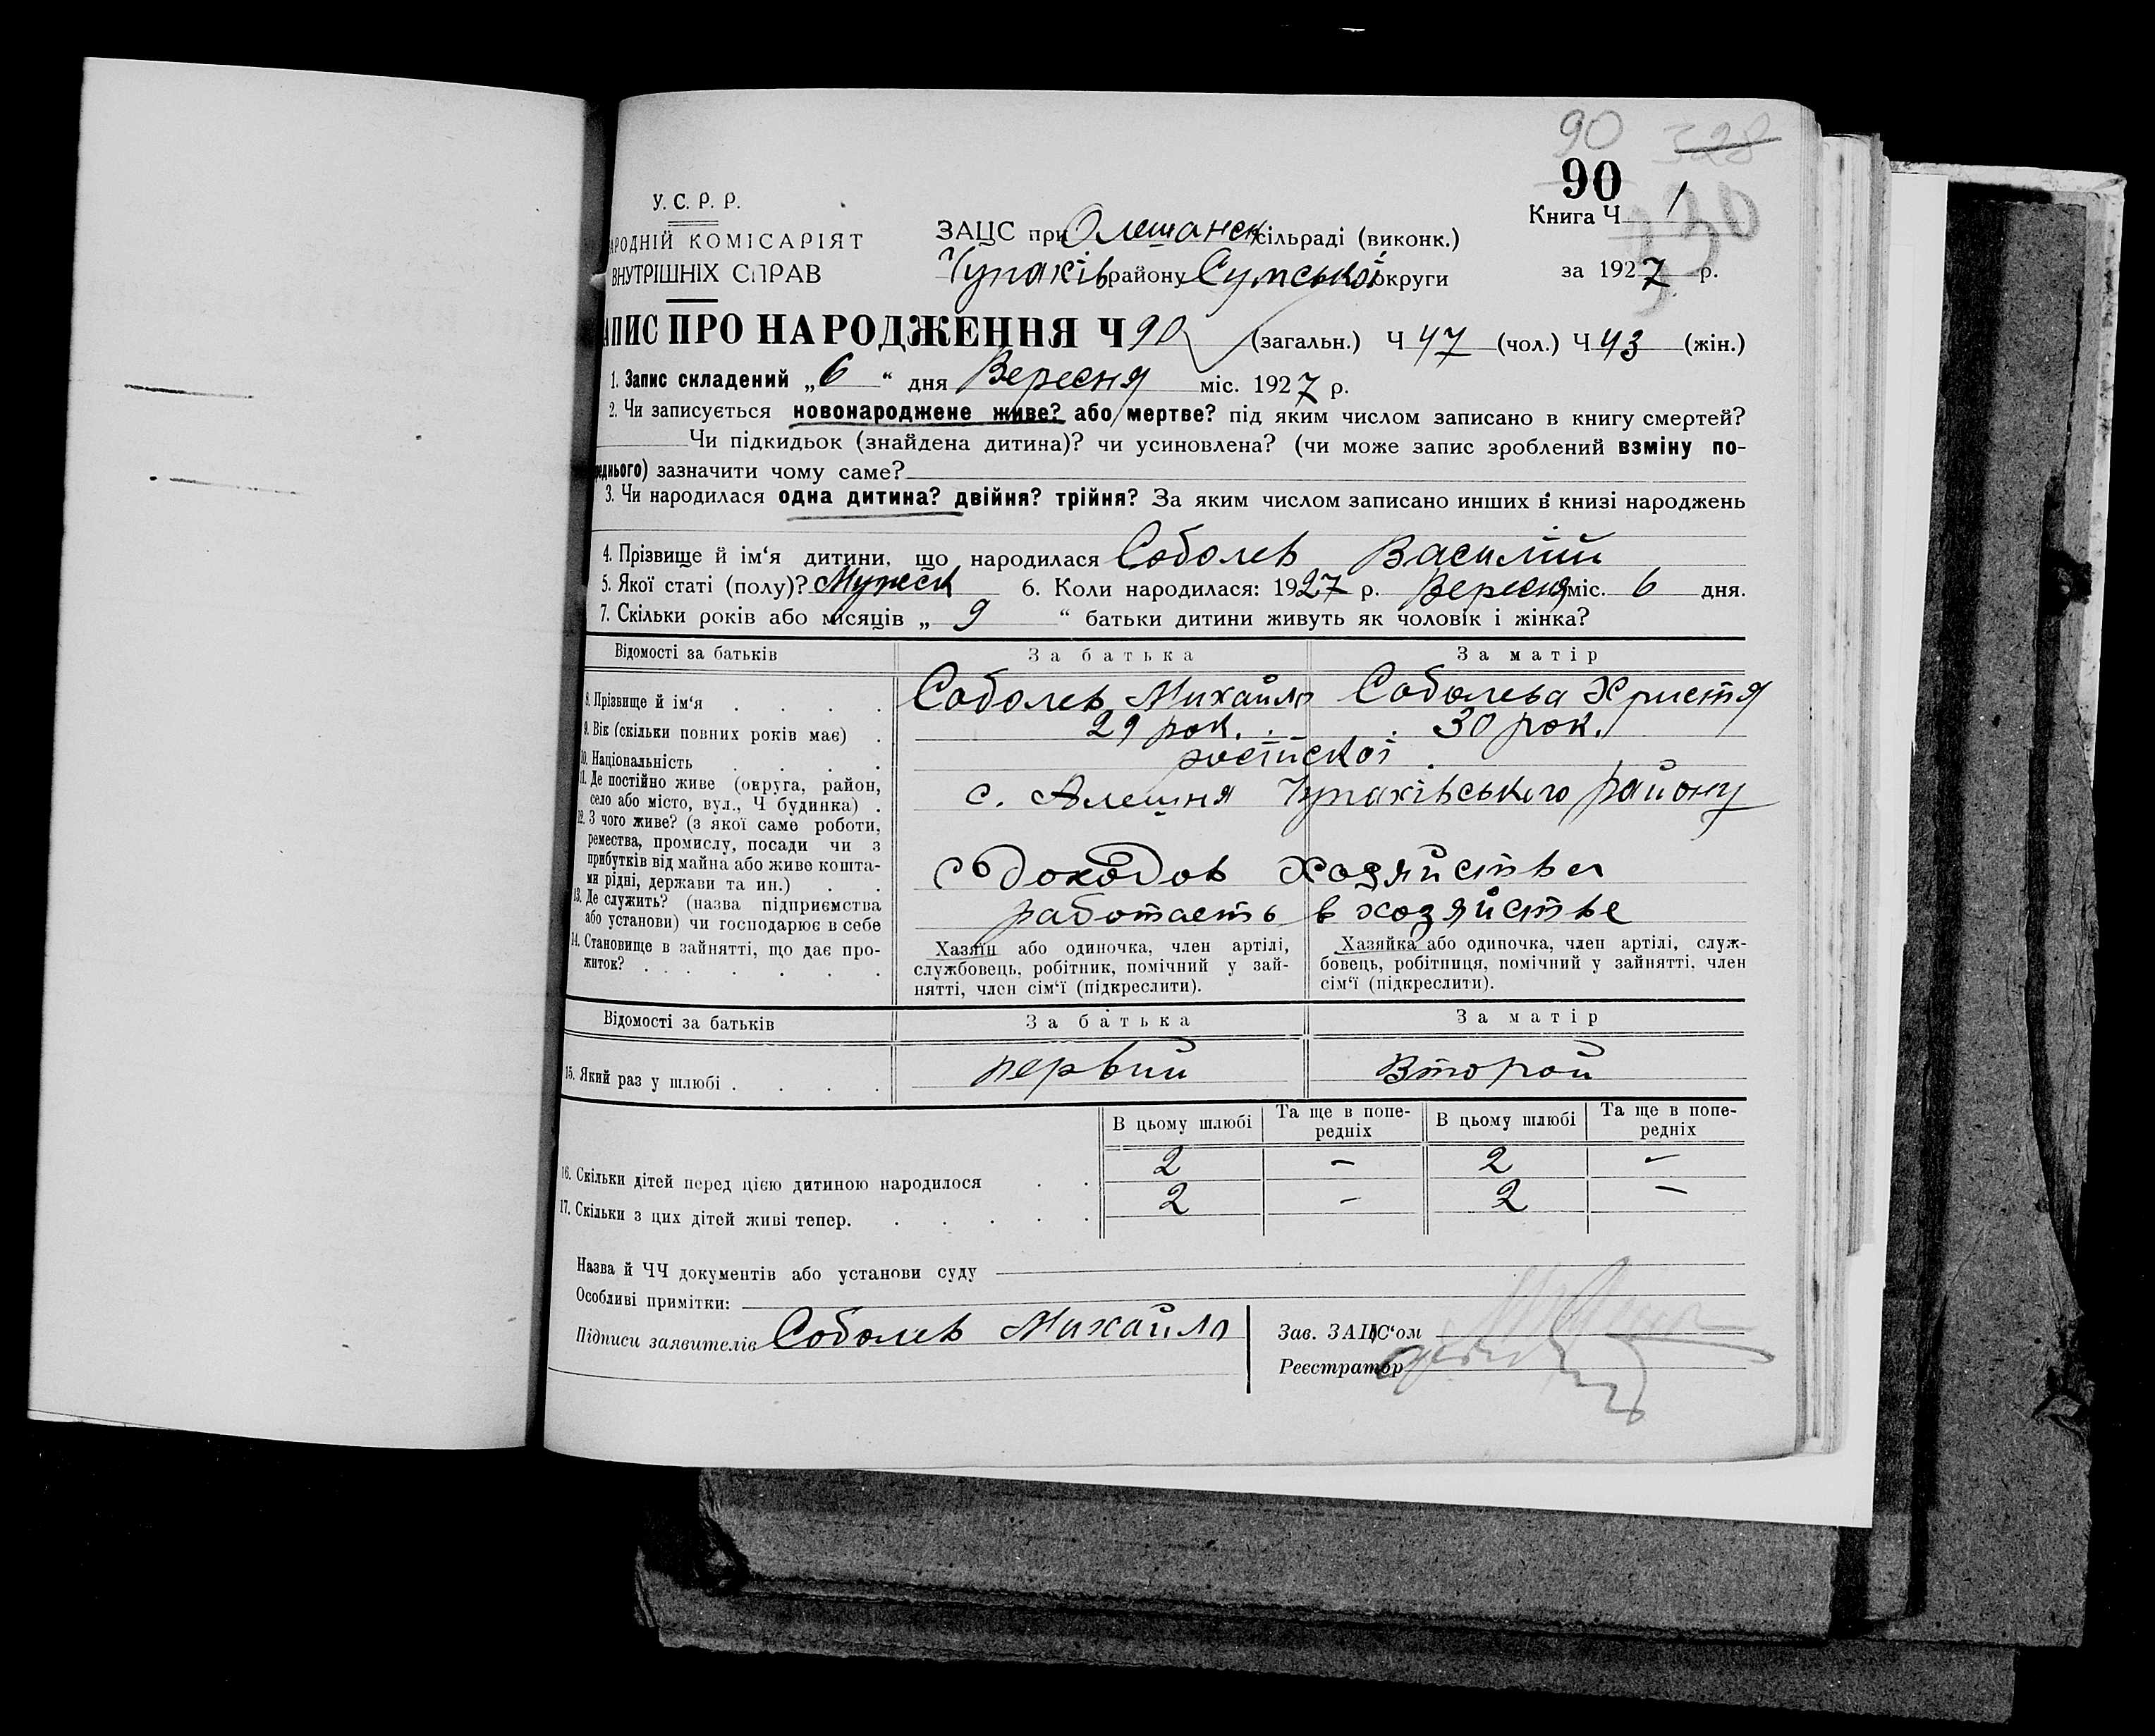 90 328
90
330
У. С. Р. Р.
АРОДНІЙ КОМІСАРІЯТ
ВНУТРІШНІХ СПРАВ
ЗАЦС при Олешанск сільраді (виконк.)
Чупахів району Сумської округи
Книга Ч 1
за 1927 р.
АПИС ПРО НАРОДЖЕННЯ Ч 90 (загальн.) Ч 47 (чол.) Ч 43 (жін.)
1. Запис складений „6“ дня Вересня міс. 1927 р.
2. Чи записується новонароджене живе? або мертве? під яким числом записано в книгу смертей?
Чи підкидьок (знайдена дитина)? чи усиновлена? (чи може запис зроблений взміну по-
реднього) зазначити чому саме?
3. Чи народилася одна дитина? двійня? трійня? За яким числом записано инших в книзі народжень
4. Прізвище й ім‘я дитини, що народилася Соболев Василий
5. Якої статі (полу)? Мужеск 6. Коли народилася: 1927 р. Вересня міс. 6 дня.
7. Скільки років або місяців „ 9 “ батьки дитини живуть як чоловік і жінка?
Відомості за батьків За батька За матір
8. Прізвище й ім‘я Соболев Михайло Соболева Христя
9. Вік (скільки повних років має) 29 рок. 30 рок.
10. Національність російської
11. Де постійно живе (округа, район,
село або місто, вул., Ч будинка) с. Алешня Чупахівського району
12. З чого живе? (з якої саме роботи,
ремества, промислу, посади чи з
прибутків від майна або живе кошта-
ми рідні, держави та ин.) С доходов хозяйства
13. Де служить? (назва підприємства
або установи) чи господарює в себе работаеть в хозяйстве
14. Становище в зайнятті, що дає про-
житок?
Хазяїн або одиночка, член артілі,
службовець, робітник, помічний у зай-
нятті, член сім‘ї (підкреслити).
Хазяйка або одиночка, член артілі, служ-
бовець, робітниця, помічний у зайнятті, член
сім‘ї (підкреслити).
Відомості за батьків За батька За матір
15. Який раз у шлюбі первий Второй
В цьому шлюбі Та ще в попе-
редніх В цьому шлюбі Та ще в попе-
редніх
16. Скільки дітей перед цією дитиною народилося 2 – 2 –
17. Скільки з цих дітей живі тепер. 2 – 2 –
Назва й ЧЧ документів або установи суду
Особливі примітки:
Підписи заявителів Соболев Михайло
Зав. ЗАЦС‘ом
Реєстратор